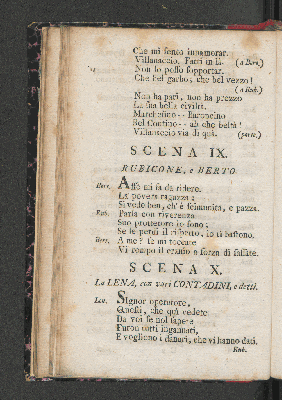 Che mi sento innamorar.
Villanaccio. Fatti in là. (a Bert.)
Non lo posso sopportar.
Che bel garbo; che bel vezzo!
(a Rub.
Non ha pari, non ha prezzo
La sua bella civiltà.
Marchesino -- Baroncino
Bel Contino -- ah che beltà!
Villanaccio via di quà. (parte.)
SCENA IX.
RUBICONE, e BERTO
Bert. Affè mi fa da ridere.
La povera ragazza;
Si vede ben, ch'è femmina, e pazza.
Rub. Parla con riverenza
Suo protettore io sono;
Se le perdi il rispetto, io ti bastono.
Bert. A me? se mi toccate
Vi rompo il cranio a forza di sassate.
SCENA X.
La LENA, con varj CONTADINI, e detti.
Len. Signor operatore,
Questi, che quì vedete
Da voi se nol sapete
Furon tutti ingannati,
E vogliono i danari, che vi hanno dati.
Rub.